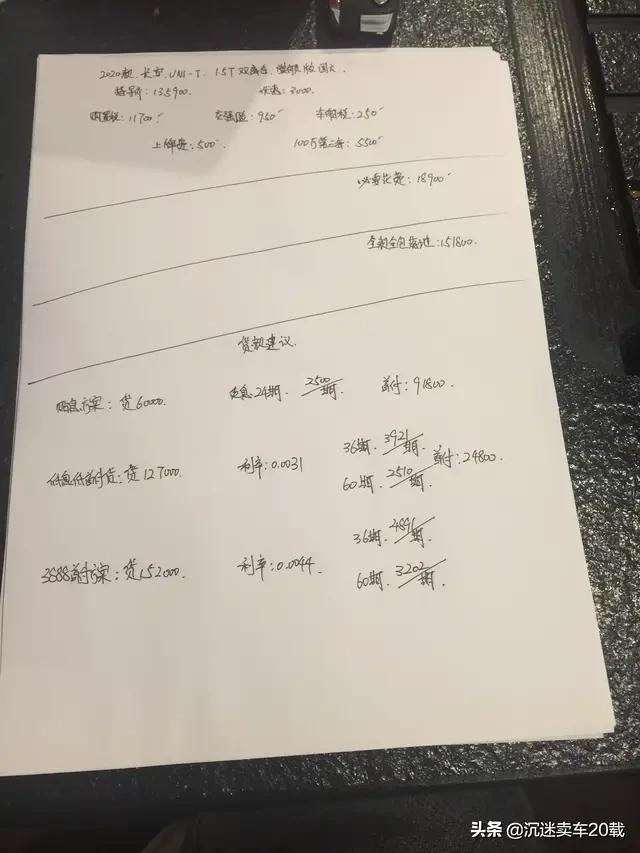 2020款 长安 UNI-T 1.5T 双离合 旗舰版 国六.
指导价: 135900. 优惠: 3000.
购置税: 11700 交强险: 950 车船税: 250
上牌费: 500. 100万第三者: 5500
必要花费: 18900
全款全包落地: 151800.
贷款建议.
贴息方案: 贷60000. 免息24期. 2500/期. 首付: 91800.
低息低首付贷: 贷127000. 利率: 0.0031 36期. 3921/期. 首付: 24800.
60期. 2510/期.
3888首付方案: 贷152000. 利率: 0.0044. 36期. 4896/期.
60期. 3202/期.
头条 @沉迷卖车20载